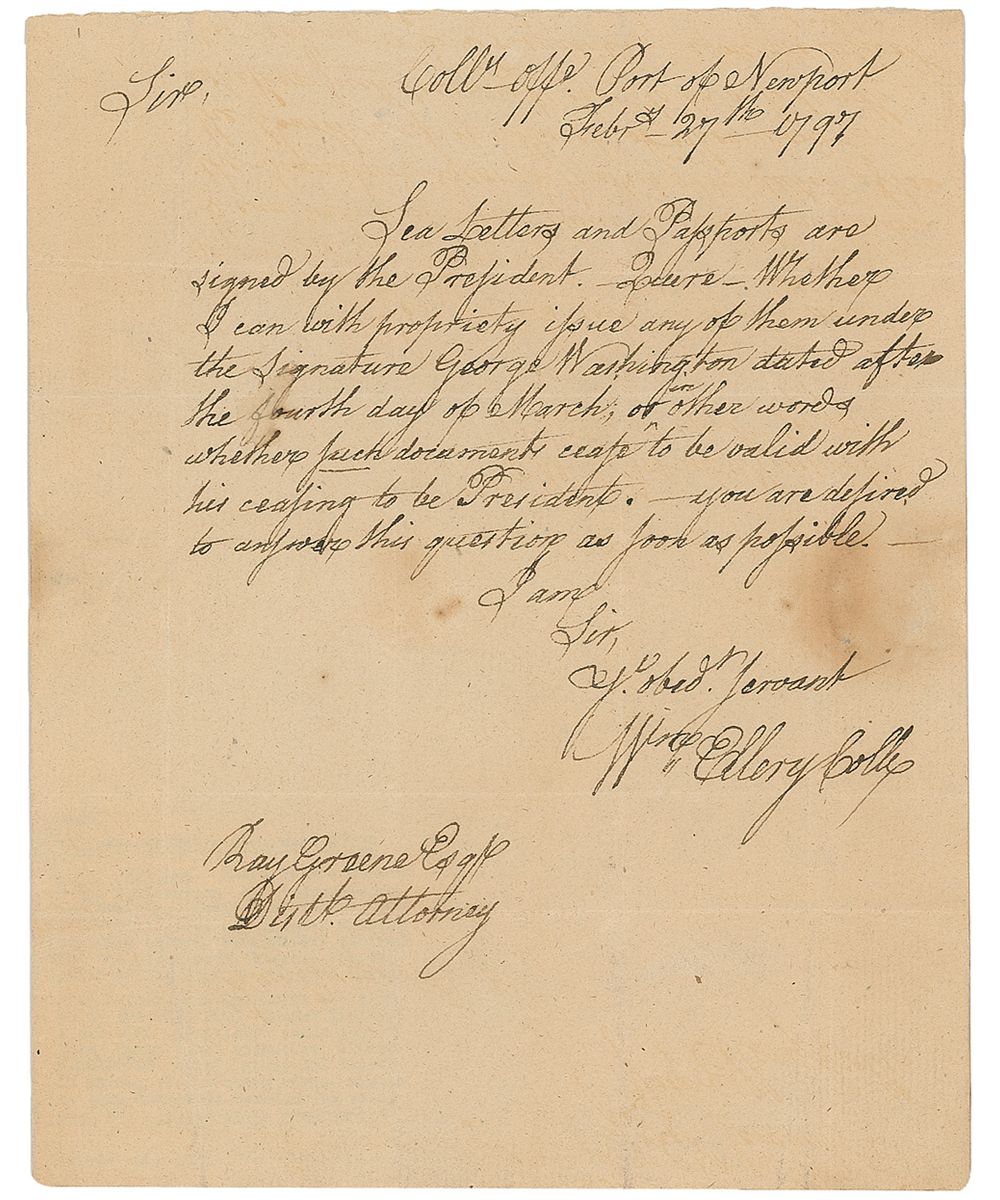 Coll.rs Offe. Port of Newport
Sir,
Feb.ry 27th 1797
Sea Letters and Passports are
signed by the President. – Quere – Whether
I can with propriety issue any of them under
the Signature George Washington dated after
the fourth day of March; or in other words
whether such documents cease to be valid with
his ceasing to be President. – you are desired
to answer this question as soon as possible. –
I am
Sir,
Yr. obedt. servant
Wm. Ellery Collr
Ray Greene Esqr
Distt. Attorney